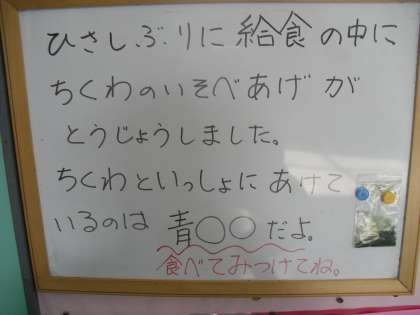 ひさしぶりに給食の中に
ちくわのいそべあげが
とうじょうしました。
ちくわといっしょにあげて
いるのは青〇〇だよ。
食べてみつけてね。